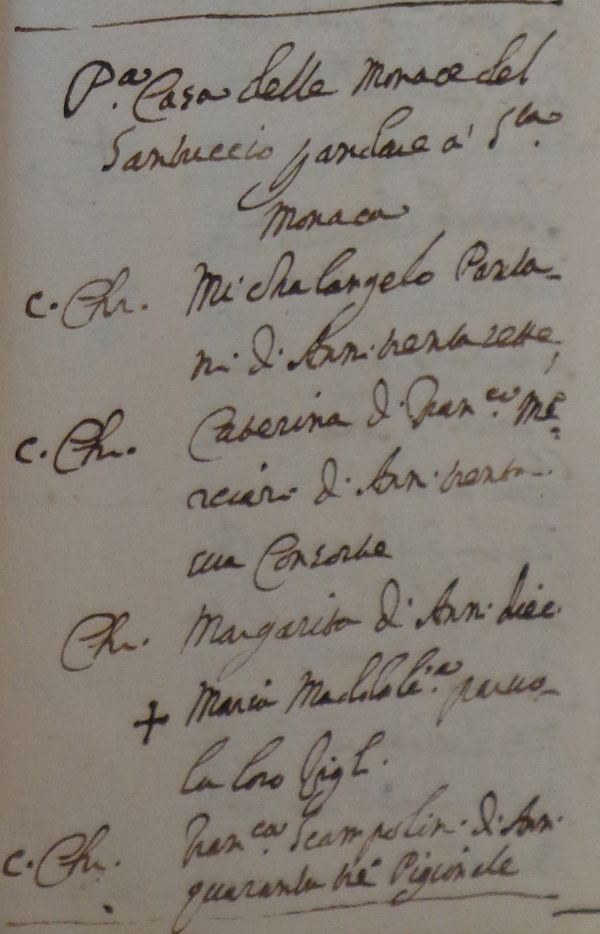 P.a Casa delle Monace del
Santuccio p andare a' S.ta
Monaca
C. Chr. Michalangelo Panta-
ni d' Anni trenta sette,
C. Chr. Caterina d. Fran.co Me=
rciari d' Ann. trenta
sua Consorte
Chr. Margarita d' Ann. diec.
+ Maria Maddal.a parvo-
la loro Figl.
C. Chr. Fran.ca Scampolin. d' Ann.
quaranta tre Pigionale